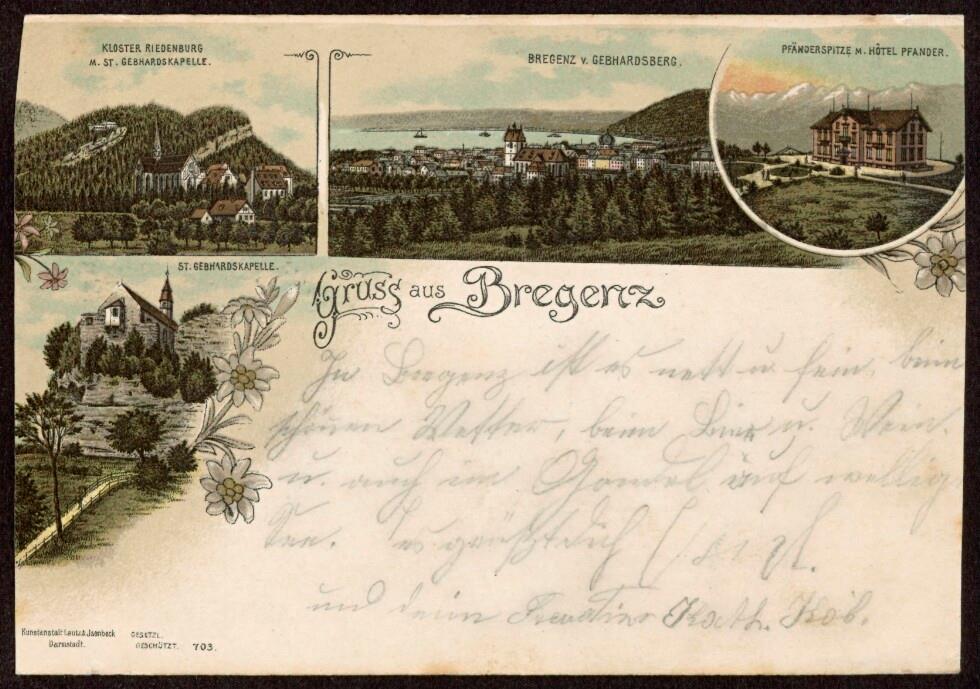 KLOSTER RIEDENBURG
M. ST. GEBHARDSKAPELLE.
BREGENZ v. GEBHARDSBERG.
PFÄNDERSPITZE M. HÔTEL PFANDER.
ST. GEBHARDSKAPELLE.
Gruss aus Bregenz
In Bregenz ist es nett u. fein, beim
schönen Wetter, beim Bier u. Wein.
u. auch im Gondel auf wellig
See. Es grüßt dich
und dein Kath. Kob.
Kunstanstalt Lautz & Jsenbeck
Darmstadt.
GESETZL.
GESCHÜTZT. 703.